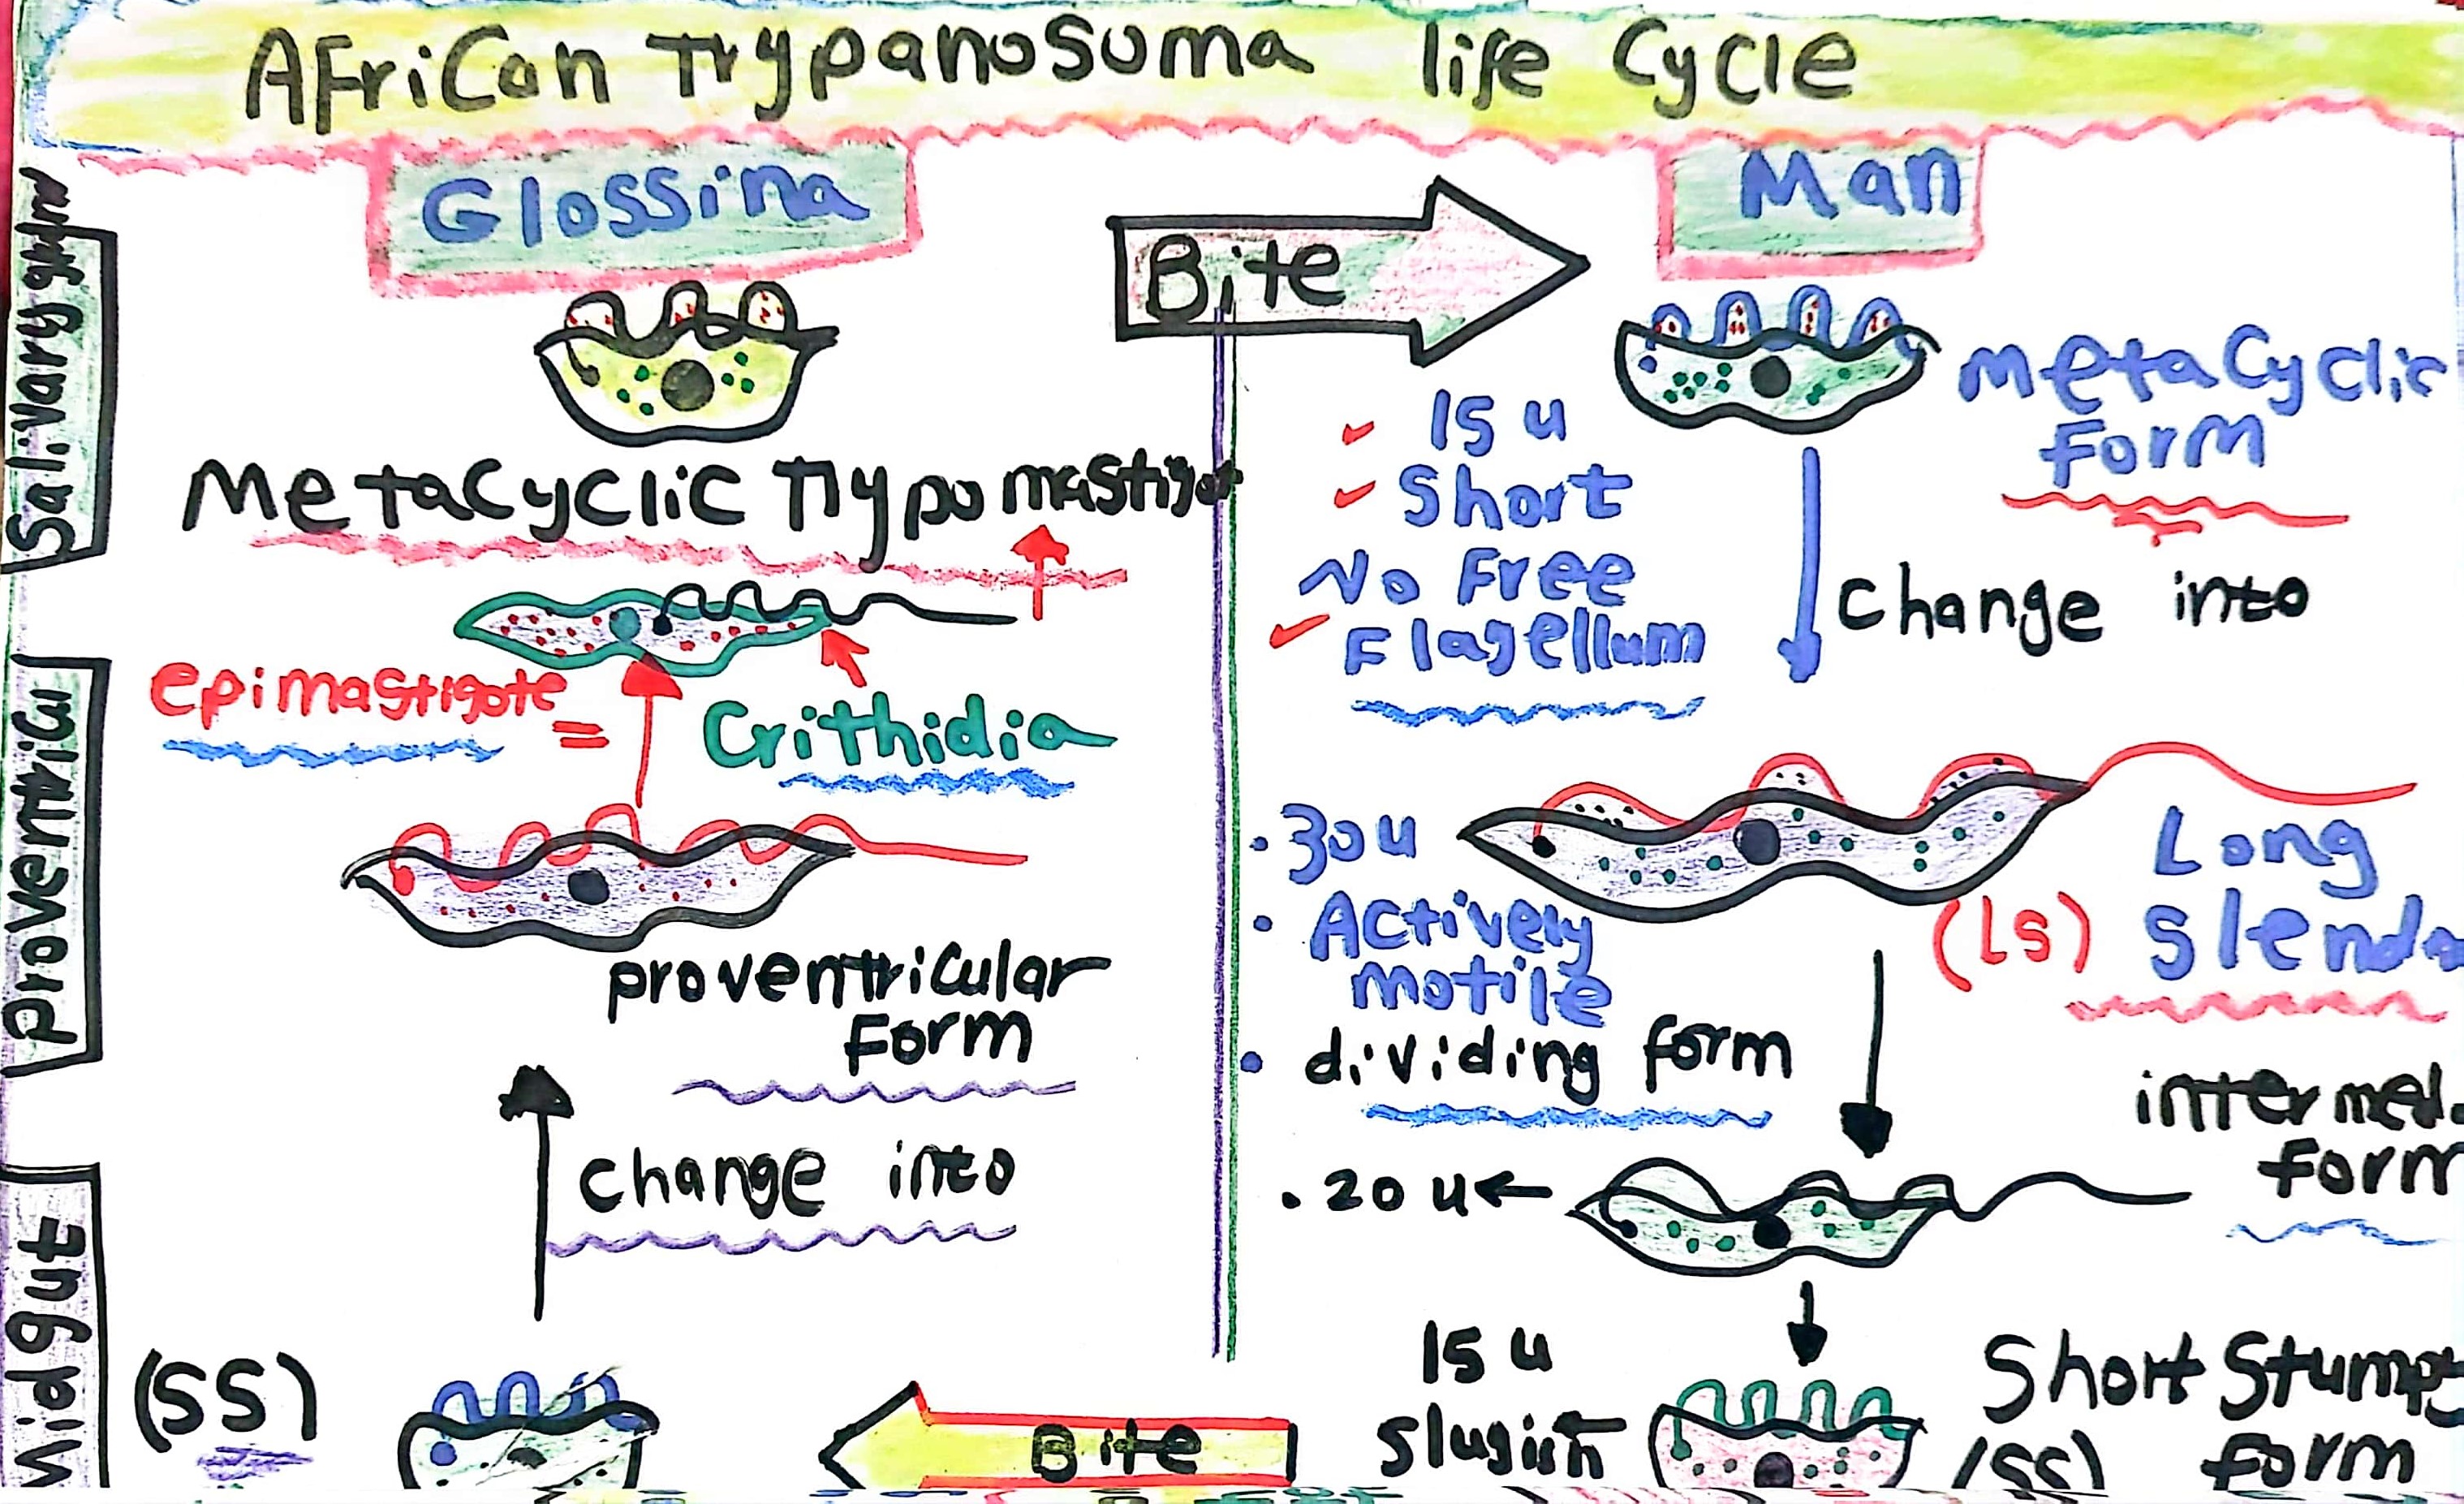 African Trypanosoma life Cycle
Glossina
Bite
Man
Salivary
Metacyclic
Form
15 u
Short
No Free
Flagellum
Change into
Metacyclic
epimastigote =
Crithidia
Proventricul
proventricular
Form
change into
30 u
Actively
motile
dividing form
Long
(LS)
intermed.
form
20 u
Midgut
(SS)
Bite
15 u
Short
form
(SS)